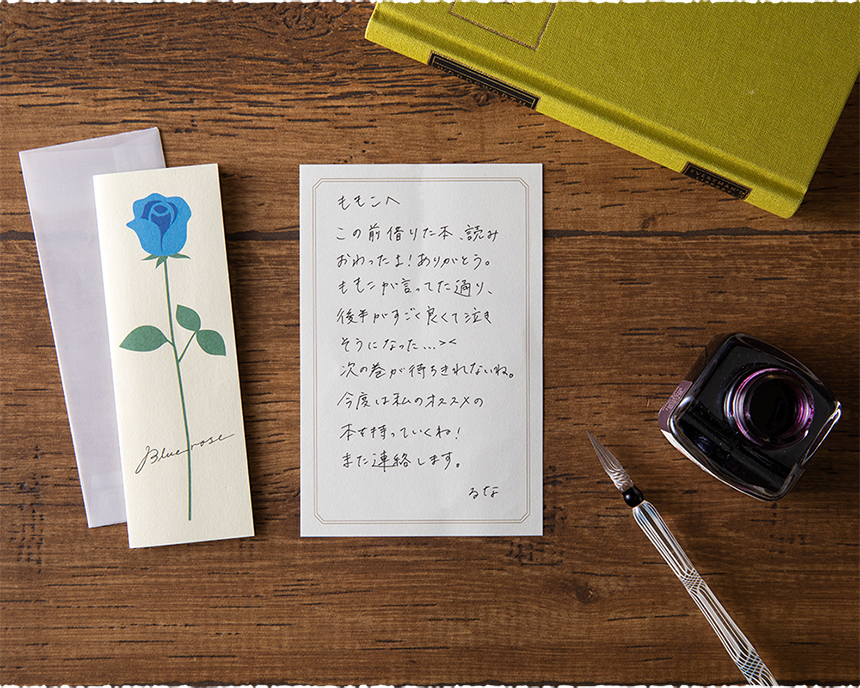 Blue rose
ももこへ
この前借りた本、読み
おわったよ!ありがとう。
ももこが言ってた通り、
後半がすごく良くて泣き
そうになった...><
次の巻が待ちきれないね。
今度は私のオススメの
本を持っていくね!
また連絡します。
るな